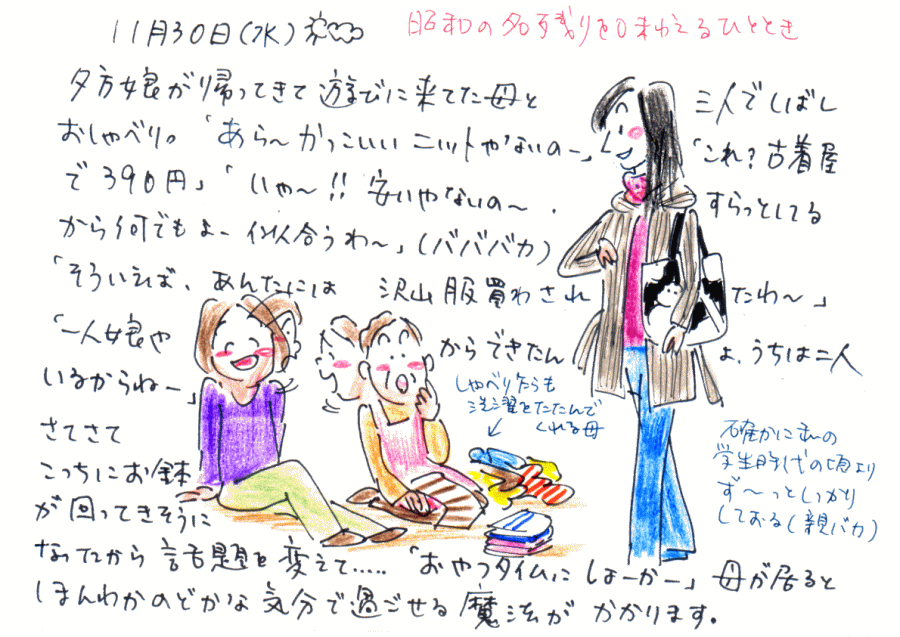 11月30日(水)
昭和の名残りを味わえるひととき
夕方娘が帰ってきて遊びに来てた母と 三人でしばし
おしゃべり。「あら〜かっこいいニットやないのー」「これ?古着屋
で390円」「いゃ〜!!安いやないの〜. すらっとしてる
から何でもよー似合うわ〜」(バババカ)
「そういえば、あんたには 沢山服買わされ たわ〜」
「一人娘や からできたん よ、うちは二人
いるからねー」
しゃべりながらも
洗濯をたたんで
くれる母
さてさて
こっちにお鉢
が回ってきそうに
確かに私の
学生時代の頃より
ず〜っとしっかり
しておる(親バカ)
なってたから話題を変えて.....「おやつタイムにしよーかー」母が居ると
ほんわかのどかな気分で過ごせる魔法がかかります。